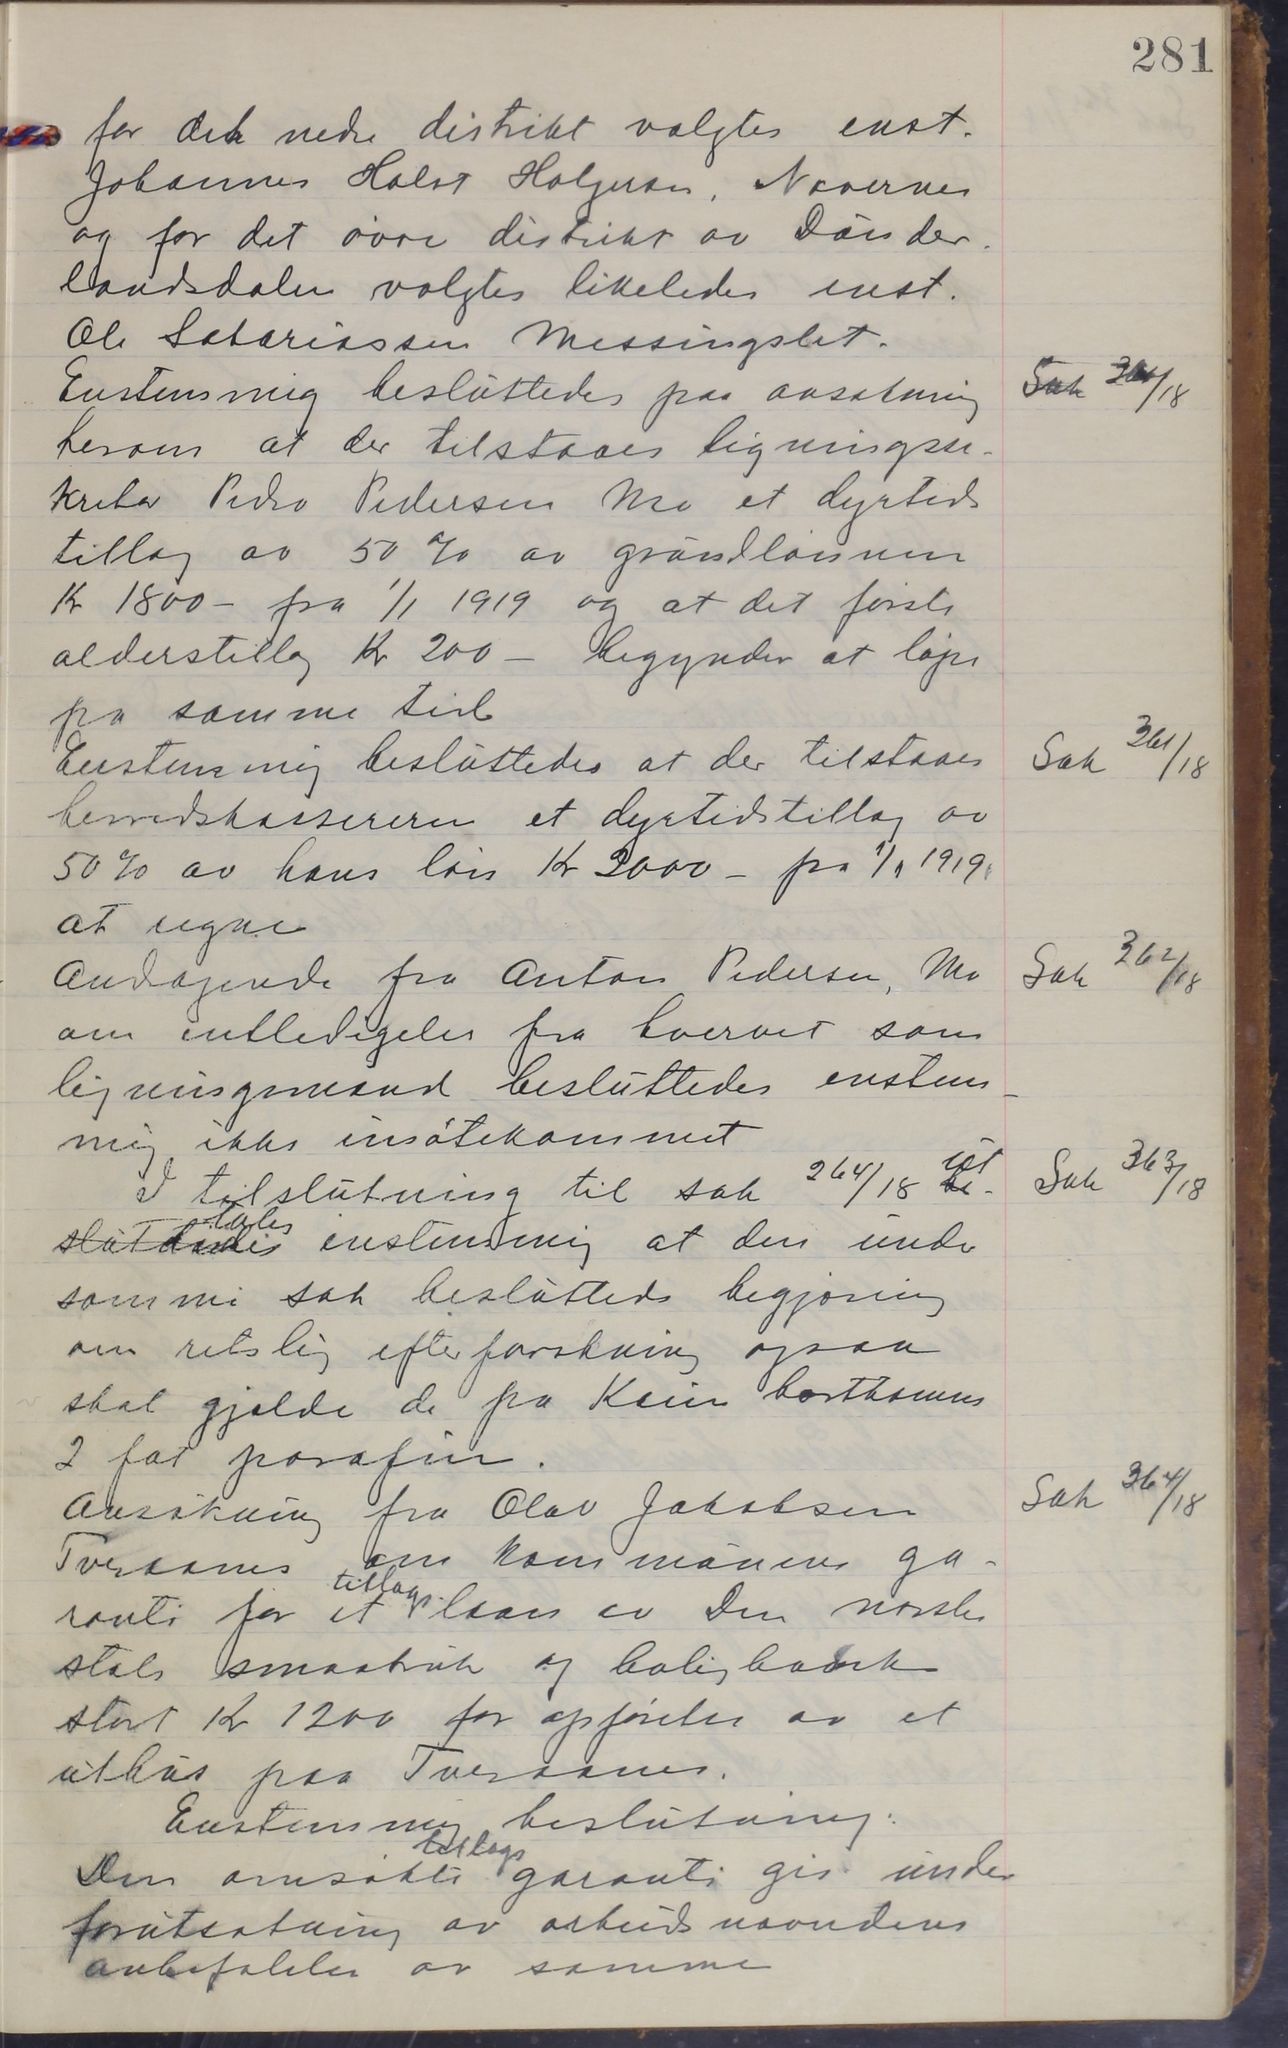 281
for det nedre distrikt valgtes enst.
Johannes Holst Holgersen, Nævernes
og for det øvre distrikt av Dunder-
landsdalen valgtes likeledes enst.
Ole Sakariassen Messingslet.
Enstemmig besluttedes paa ansøkning Sak 360/18
herom at der tilstaaes ligningsse-
kretær Peder Pedersen Mo et dyrtids
tillæg av 50 % av grundlønnen
Kr 1800 – fra 1/1 1919 og at det første
alderstillæg Kr 200 – begynder at løpe
fra samme tid
Enstemmig besluttedes at der tilstaaes Sak 361/18
herredskassereren et dyrtidstillæg av
50 % av hans løn Kr 2000 – fra 1/1 1919
at regne
Andragende fra Anton Pedersen, Mo Sak 362/18
om entledigelse fra hvervet som
ligningsmand besluttedes enstem-
mig ikke imøtekommet
I tilslutning til sak 264/18 ut Sak 363/18
tales enstemmig at den under
samme sak besluttede begjæring
om retslig efterforskning ogsaa
skal gjælde de fra Kaien bortkomne
2 fat parafin.
Ansøkning fra Olav Jakobsen Sak 364/18
Tveraanes om kommunens ga-
ranti for et tillægs laan av Den norske
stats smaabruk og boligbank
stort Kr 1200 for opførelse av et
uthus paa Tveraanes.
Enstemmig beslutning:
Den omsøkte tillægs garanti gis under
forutsætning av arbeidsnævndens
anbefaling av samme